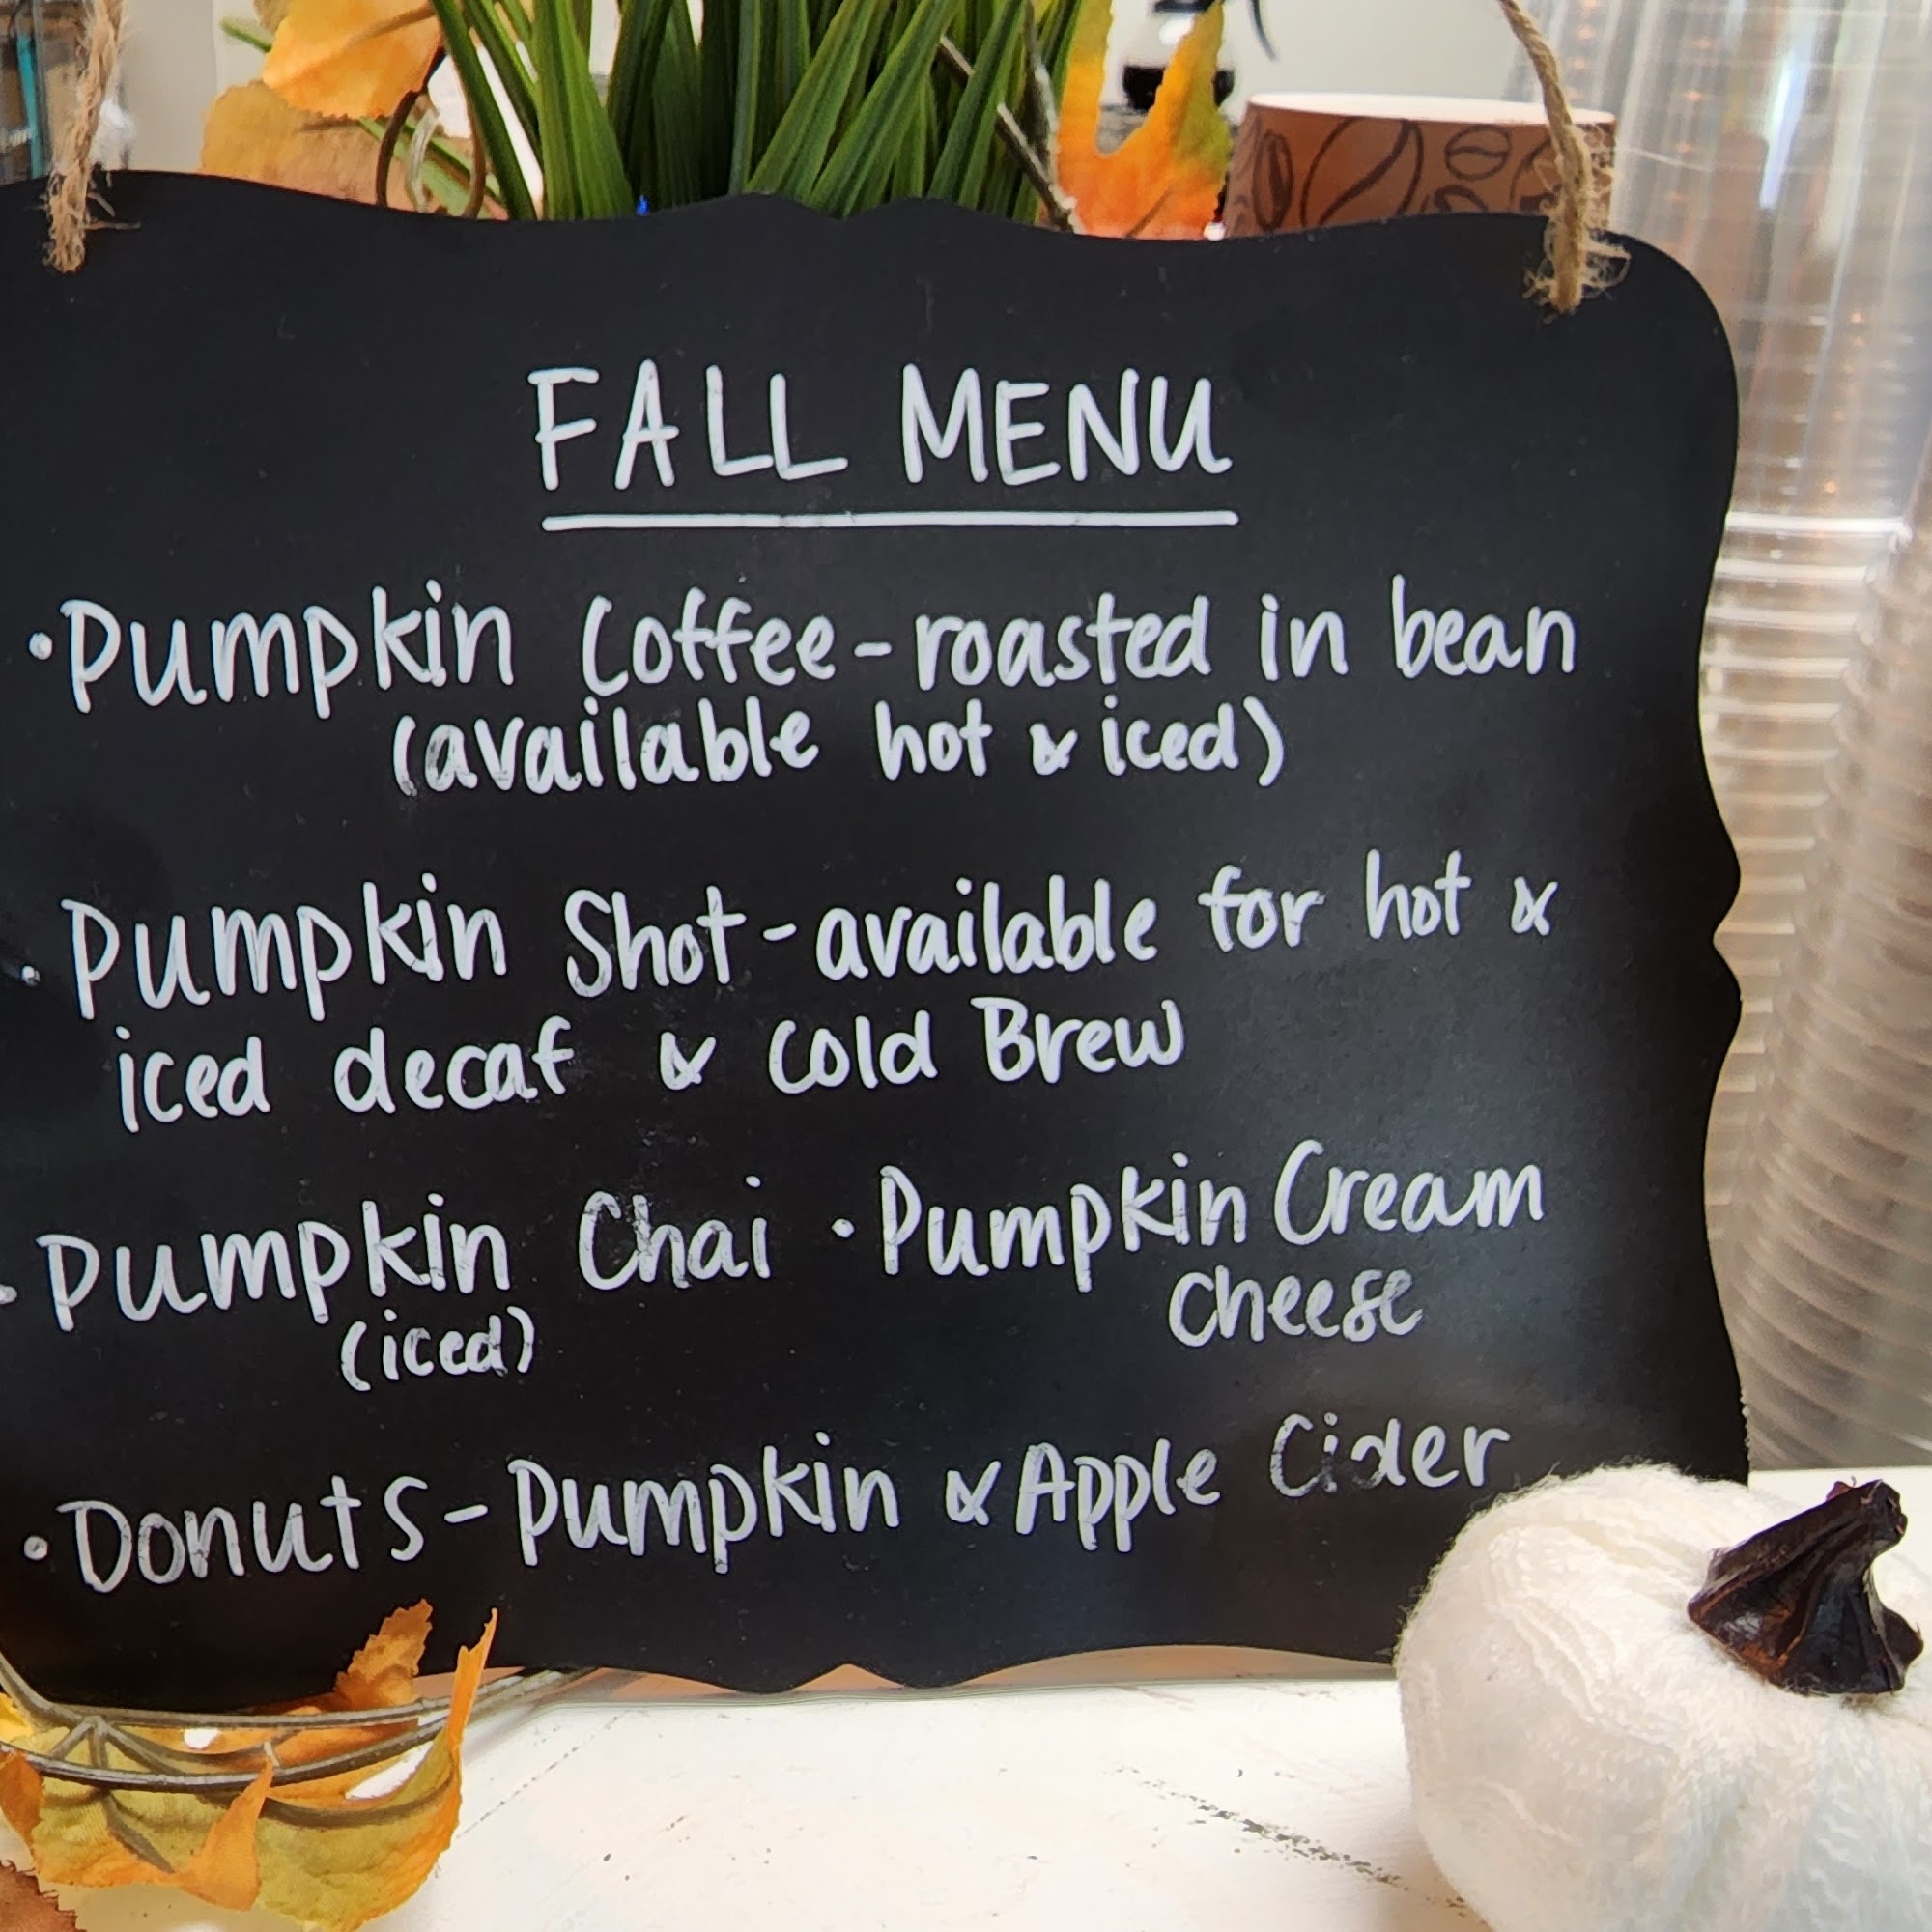 FALL MENU
•Pumpkin Coffee-roasted in bean
(available hot & iced)
•Pumpkin Shot-available for hot &
iced decaf & Cold Brew
•Pumpkin Chai •Pumpkin Cream
(iced) Cheese
•Donuts-Pumpkin & Apple Cider